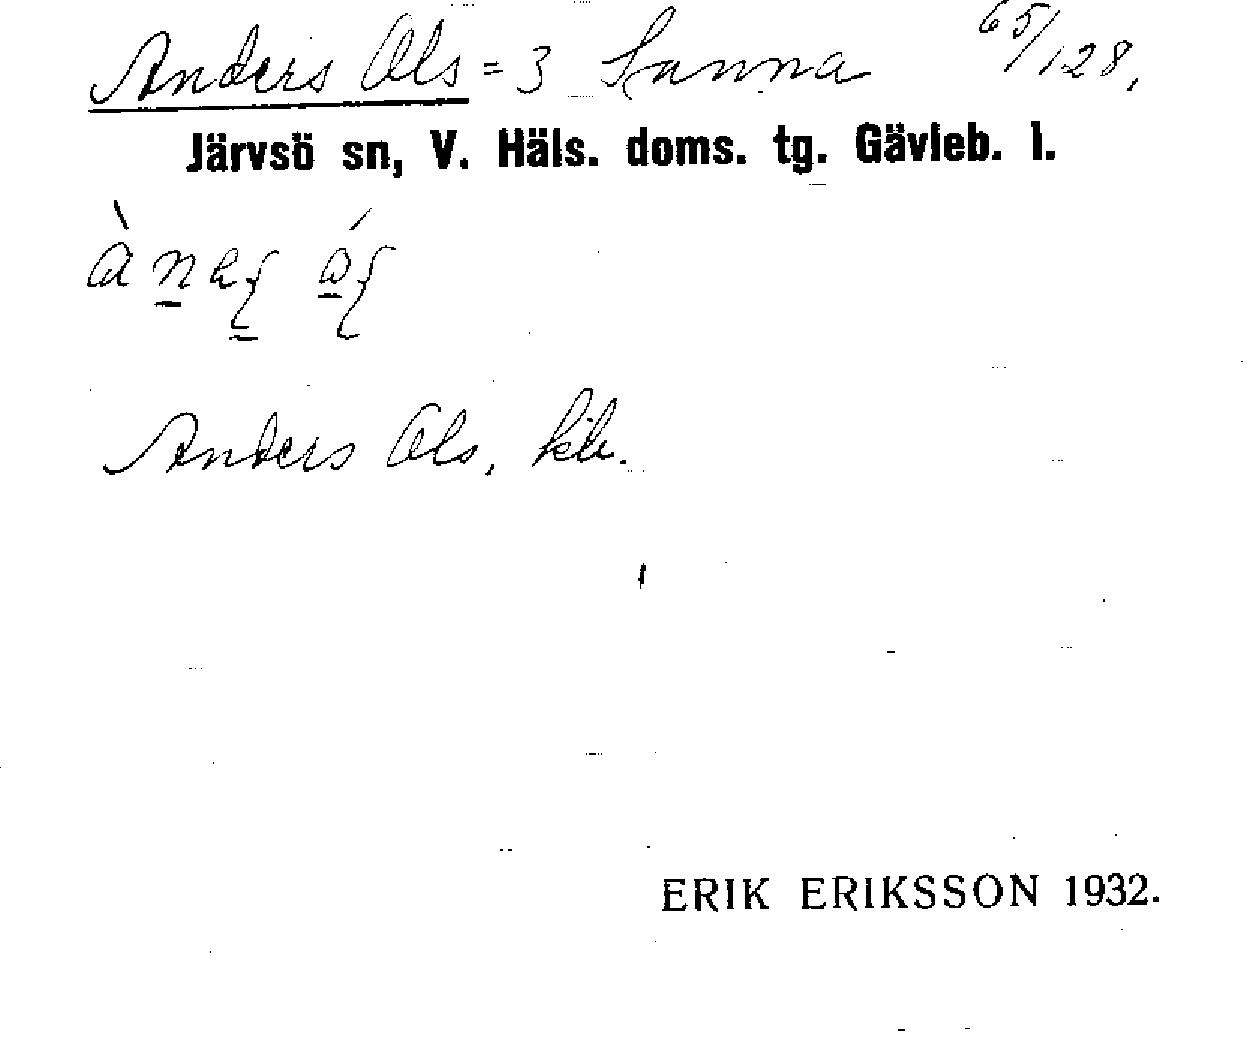 Anders Ols = 3 Sanna 65/128,
Järvsö sn, V. Häls. doms. tg. Gävleb. l.
Anders Ols, kb.
ERIK ERIKSSON 1932.